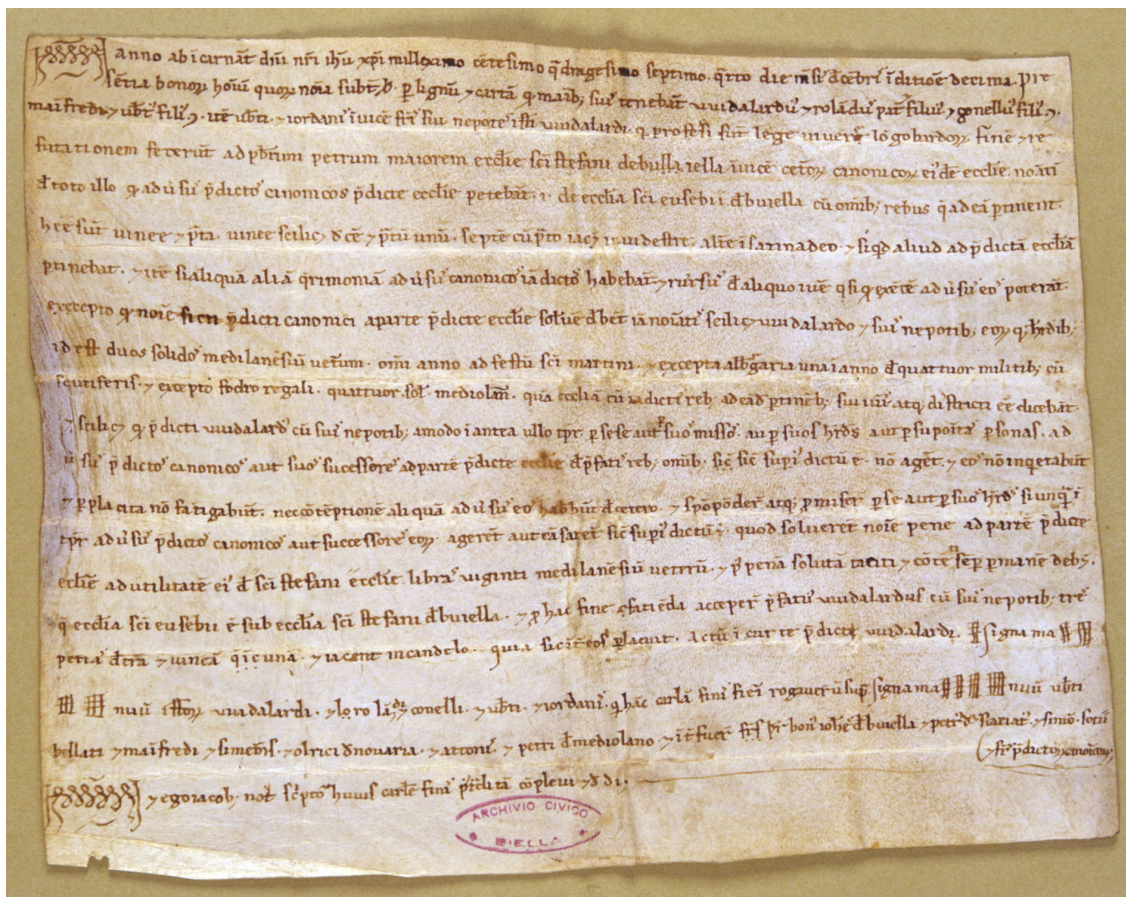 anno ab icarnat dni nri ihu xpi milleximo cētesimo qdragesimo septimo. qrto die msi dcebri īditiōe decima. pre
sētia bonoȝ hoīuȝ quoȝ noīa subt; . p lignū ⁊ cartā q maib; sui tenebāt vvidalardu ⁊ rolādu pat filiu ⁊ gonellu filiu
maīfredi, ⁊ ubti filiu. itē ubti. ⁊ iordani īuicē sui nepote isti vvidalardi. q professi sut lege viuere lōgobardoȝ. finē ⁊ re
futationem fecerūt ad pbrum petrum maiorem ecclie sci stefani de buiella īuicē cetoȝ canonicoȝ eide ecclie. noīati
d toto illo q adusu pdicto canonicos pdicte ecclie petebāt. de ecclia sci eusebii dbuiella cū omib; rebus q adea ptinent.
hee sūt vinee ⁊ pta. vinee scilic; dece ⁊ ptū unū. septē cū pto iac; ī vinidestre. alie ī sarinadeo. ⁊ siqd aliud ad pdictā eccliā
ptinebat. ⁊ itē si aliquā aliā qrimoniā adusu canonico iādicto habebāt. ⁊ rursu d aliquo adusu eo poterāt.
excepto q noīe pdicti canonici aparte pdicte ecclie soluē dbēt iā noīati scilic; vvidalardo ⁊ sui nepotib; eoȝ q; hrdib;
id est duos solido medilanēsiū veterum. omī anno ad festū sci martini. ⁊ excepta albgaria una ī anno d quattuor militib; cū
squiferis. ⁊ excepto fodro regali. quattuor sol mediolan. quā eccliā cū iadicti reb; adeā ptinētib; sui iuri atq; districti eē dicebat.
⁊ scilic; q pdicti vvidalard cū sui nepotib; amodo ī antea ullo tpr. p sese aut p suo misso. aut p suos hrds aut p supoita psonas. ad
usu pdicto canonico aut suo sucessore ad parte pdicte ecclie d pfati reb; omib; sic supi dictū e. nō agēt. ⁊ eo nō inqetabūt
⁊ p placita nō fatigabūt. nec cōtēptionē aliquā adusu eo habbūt dcetero. ⁊ spōpōder atq; pmiser p se aut p suo hrds si unqā ī
tpr adusu pdicto canonico aut successore eoȝ agerēt aut cāsarēt sic supi dictū e. quod soluerēt noīe pene ad partē pdicte
ecclie ad utilitatē ei d sci stefani ecclie libra viginti medilanēsiū veterū. ⁊ p penā solutā taciti ⁊ cōtēti sēp pmanē deb;.
q ecclia sci eusebii ē sub ecclia sci stefani dbuiella. ⁊ p hac fine faciēda acceper pfatu vvidalardus cū sui nepotib; tre
petia dtra ⁊ vineā q ic unā. ⁊ iacent in candelo. quia sic it eos placuit. actū ī curte pdicti vvidalardi. signa ma
nuū istoȝ vvidalardi. ⁊ rolādi ⁊ conelli. ⁊ ubti. ⁊ iordani. q hāc cartā fini fieri rogauerū sup. signa ma nuū ubti
bellati ⁊ maīfredi ⁊ simeōis. ⁊ olrici dnovaria. ⁊ attoni. ⁊ petri dmediolano ⁊ it fuer bon iohe dbuiella ⁊ petr ⁊ simō.
⁊ ego iacob. not scpto huius carte fini pdita cōpleui ⁊ ddi.
ARCHIVIO CIVICO
BIELLA